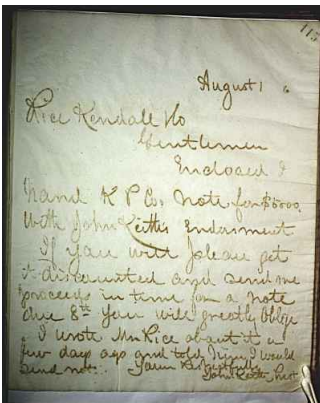 115
August 1 6
Rice Kendall Co
Gentlemen
Enclosed I
hand K P Co's note for $5000.
With John Keith's Endorsment
If you will please get
it discounted and send me
proceeds in time for a note
due 8th you will greatly oblige
I wrote Mr Rice about it a
few days ago and told him I would
send note. Yours Respectfully
John Keith Prest